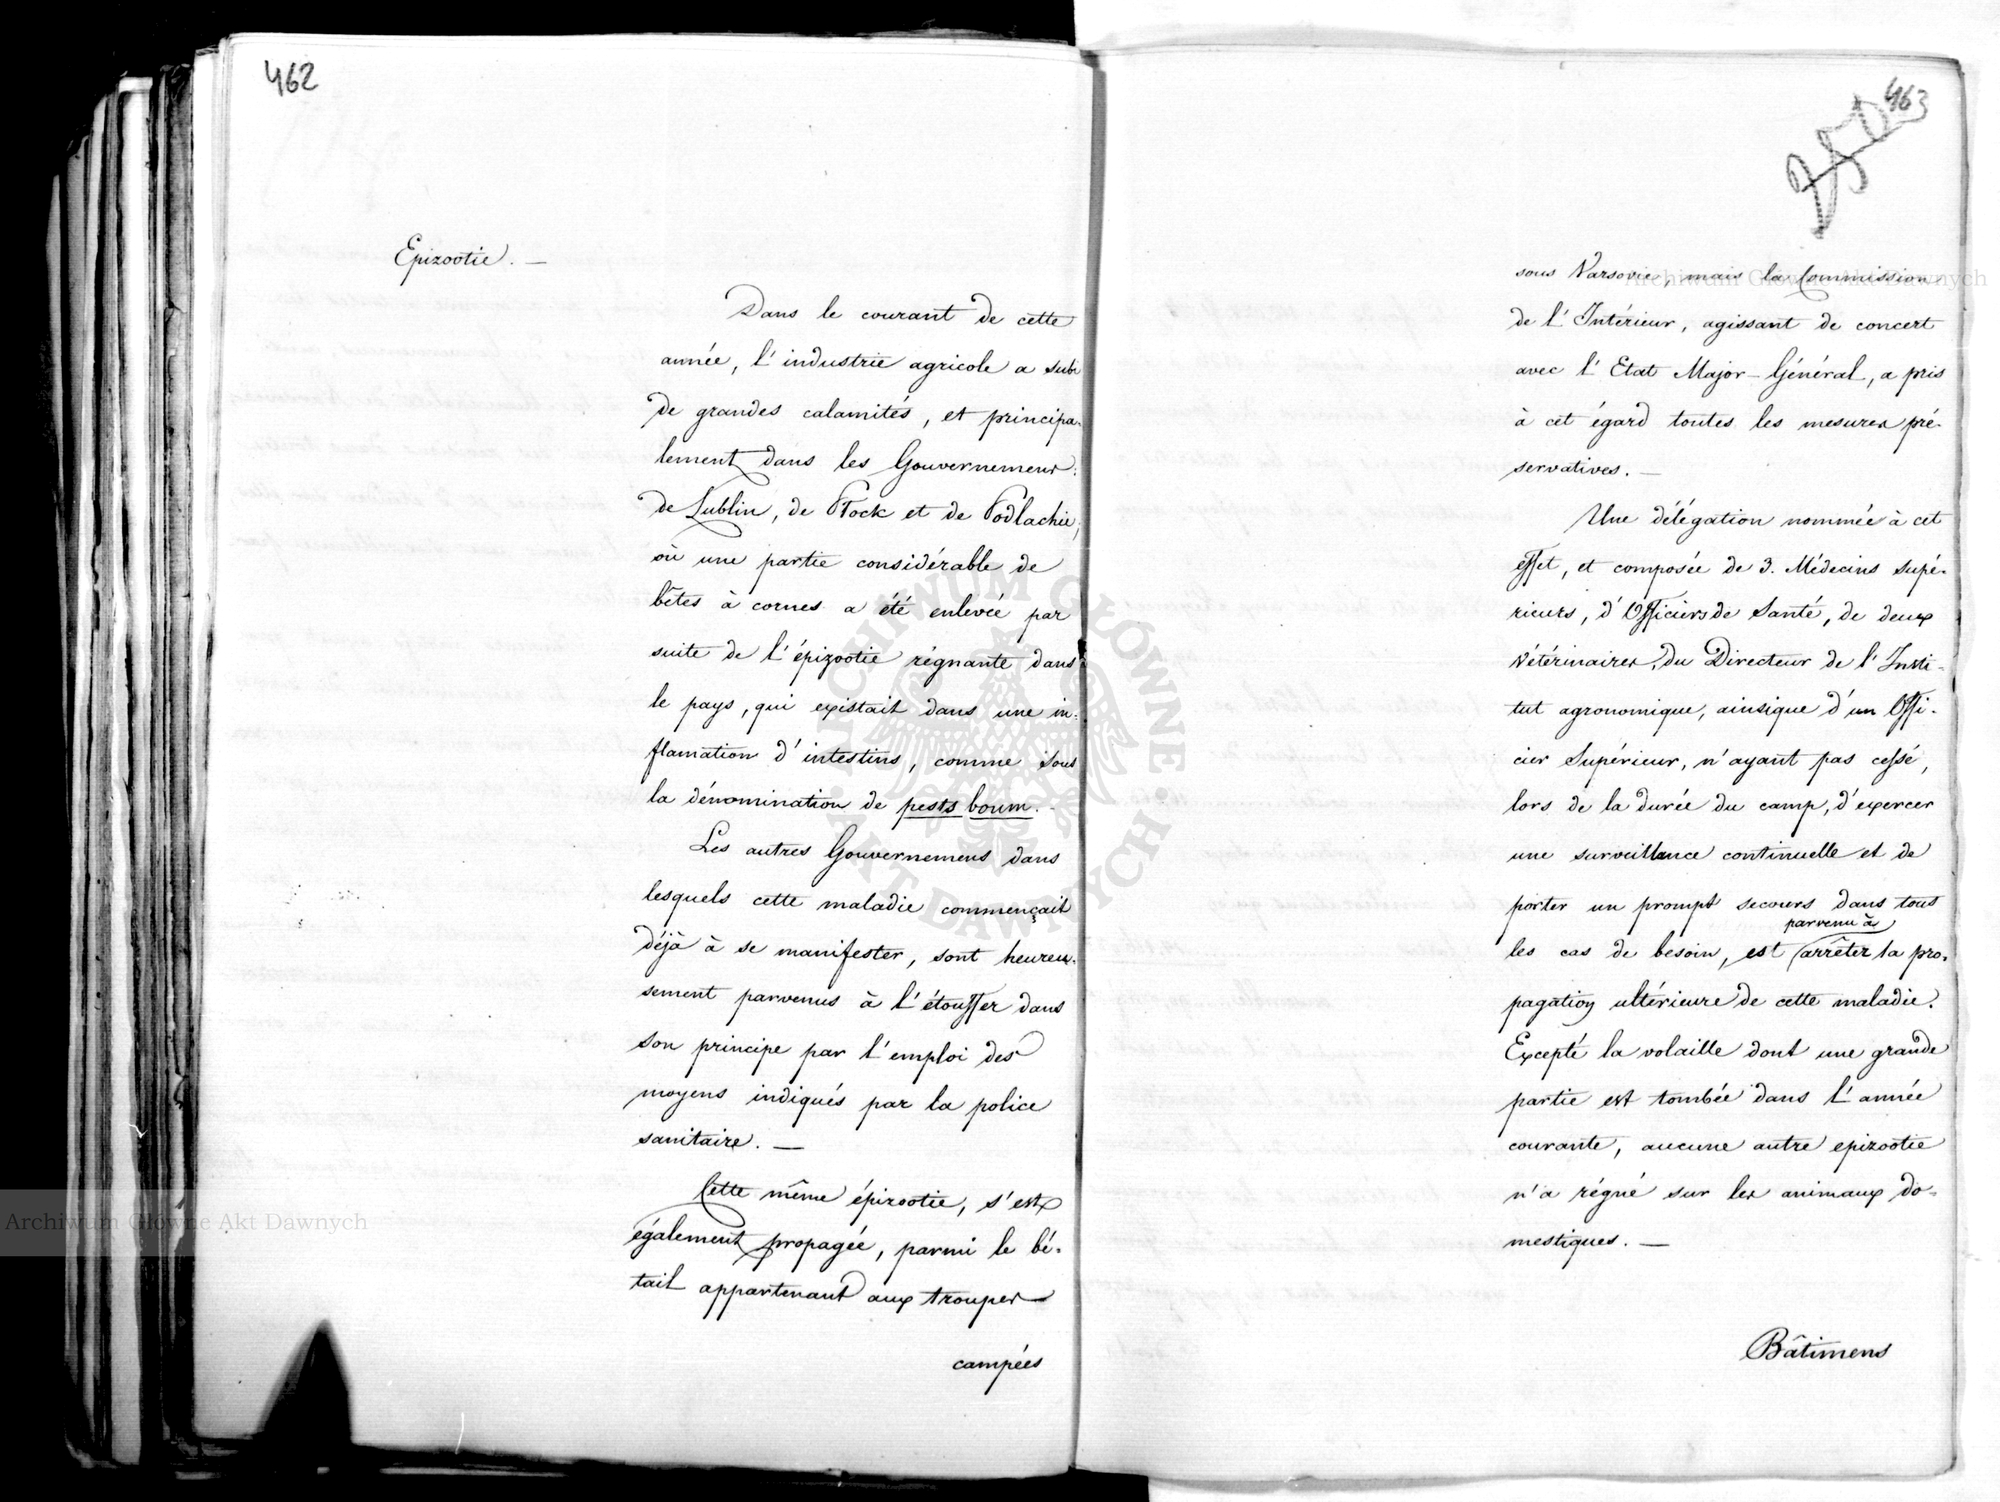 462
Epizootie. —
Dans le courant de cette
année, l'industrie agricole a subi
de grandes calamités, et principa-
lement dans les Gouvernemens
de Lublin, de Płock et de Podlachie,
où une partie considérable de
bêtes à cornes a été enlevée par
suite de l'épizootie régnante dans
le pays, qui existait dans une in-
flamation d'intestins, comme sous
la dénomination de pests boum.
Les autres Gouvernemens dans
lesquels cette maladie commençait
déjà à se manifester, sont heureu-
sement parvenus à l'étouffer dans
son principe par l'emploi des
moyens indiqués par la police
sanitaire. —
Cette même épizootie, s'est
également propagée, parmi le bé-
tail appartenant aux troupes
campées
463
sous Varsovie, mais la Commission
de l'Intérieur, agissant de concert
avec l'Etat Major-Général, a pris
à cet égard toutes les mesures pré-
servatives. —
Une délégation nommée à cet
effet, et composée de 3. Médecins supé-
rieurs, d'Officiers de Santé, de deux
Vétérinaires, du Directeur de l'Insti-
tut agronomique, ainsique d'un Offi-
cier Supérieur, n'ayant pas cessé,
lors de la durée du camp, d'exercer
une surveillance continuelle et de
porter un prompt secours dans tous
parvenu à
les cas de besoin, est arrêter la pro-
pagation ultérieure de cette maladie.
Excepté la volaille dont une grande
partie est tombée dans l'année
courante, aucune autre epizootie
n'a régné sur les animaux do-
mestiques. —
Bâtimens
Archiwum Główne Akt Dawnych
Archiwum Główne Akt Dawnych
ARCHIWUM GŁÓWNE AKT DAWNYCH